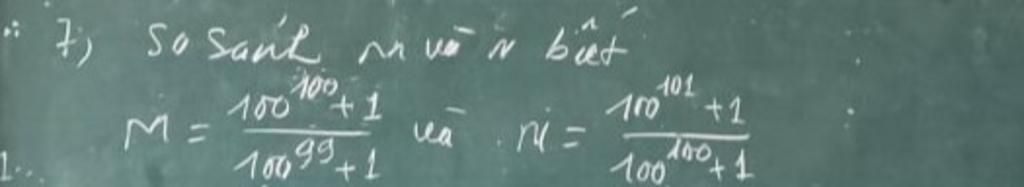 7, So Sánh M và N biết
M = \frac{100^{100}+1}{100^{99}+1} và N = \frac{100^{101}+1}{100^{100}+1}
1...